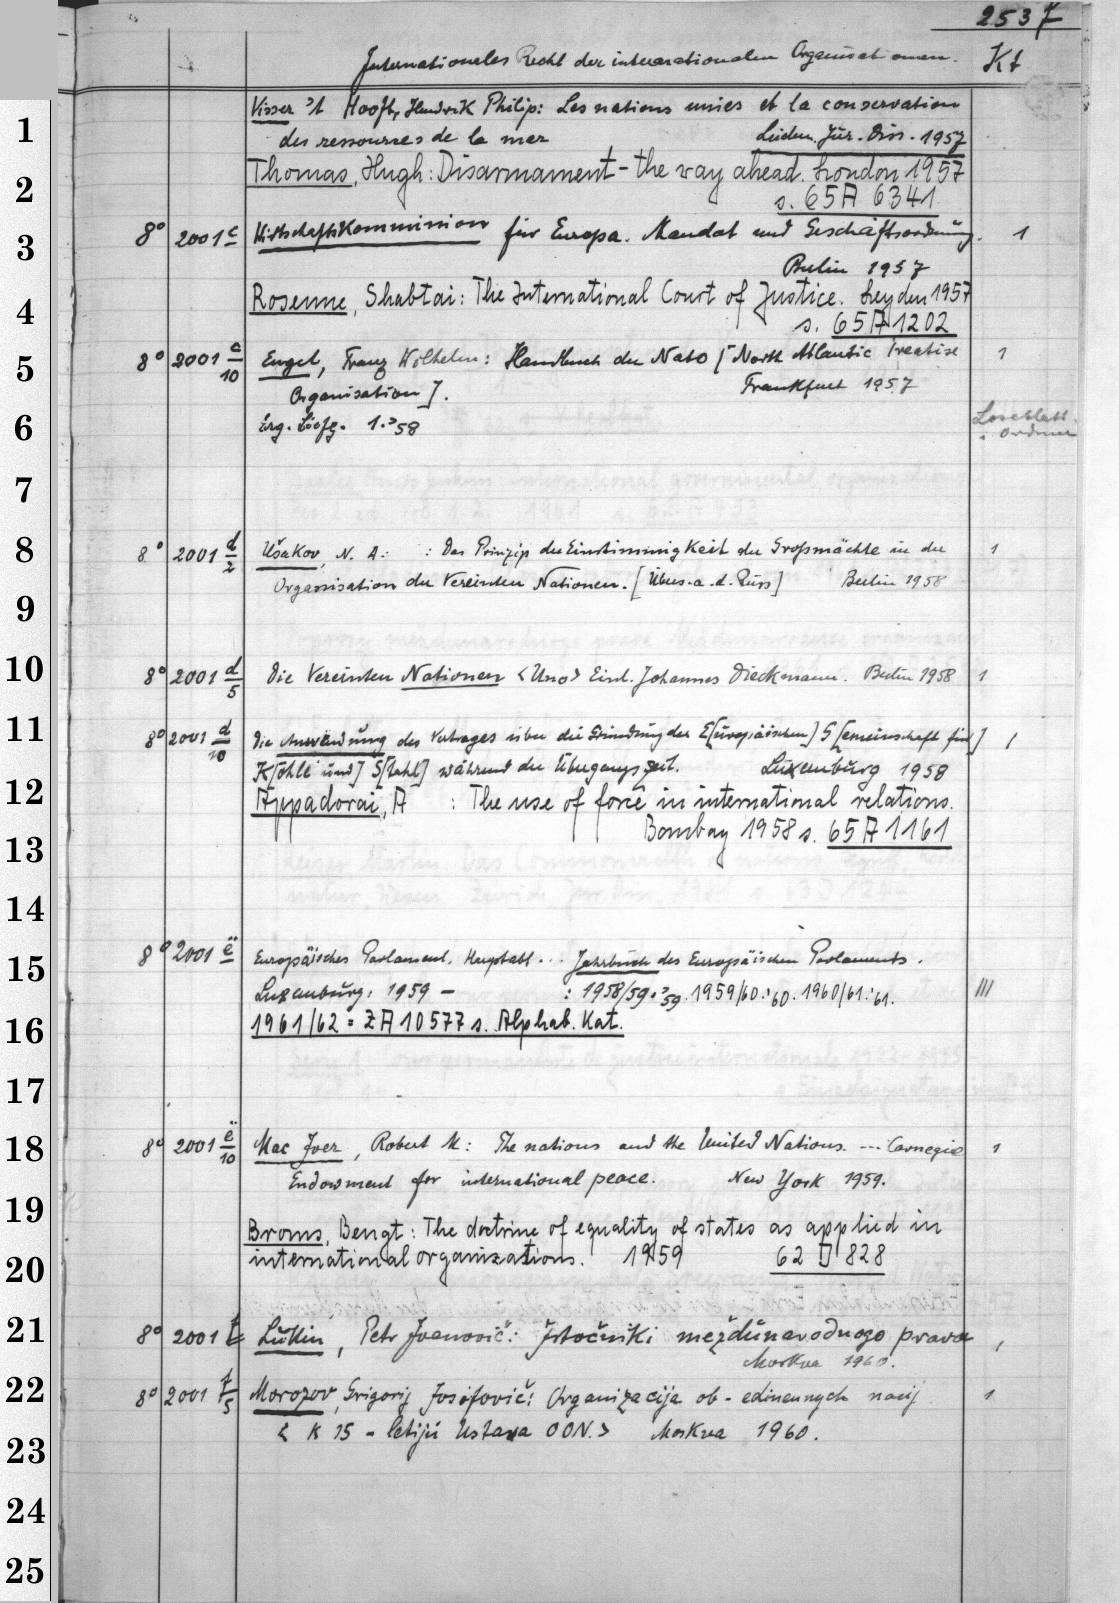 2537
Internationales Recht der internationalen Organisationen. Kt
1 Visser 't Hooft, Hendrik Philip: Les nations unies et la conservation
des ressources de la mer Leiden. Jur. Diss. 1957
2 Thomas, Hugh: Disarmament - the way ahead. London 1957
s. 65 A 6341
3 8° 2001 c Wirtschaftskommission für Europa. Mandat und Geschäftsordnung. 1
Berlin 1957
4 Rosenne, Shabtai: The International Court of Justice. Leyden 1957
s. 65 A 1202
5 8° 2001 c/10 Engel, Franz Wilhelm: Handbuch der Nato [North Atlantic Treatise 1
Organisation]. Frankfurt 1957
6 Erg. Liefg. 1.'58 Loseblatt
Ordner
7
8 8° 2001 d/2 Ušakov, N. A.: : Das Prinzip der Einstimmigkeit der Großmächte in der 1
Organisation der Vereinten Nationen. [Übers. a. d. Russ] Berlin 1958
9
10 8° 2001 d/5 Die Vereinten Nationen <Uno> Einl. Johannes Dieckmann. Berlin 1958 1
11 8° 2001 d/10 Die Anwendung des Vertrages über die Gründung der E[uropäischen] G[emeinschaft für] 1
K[ohle und] S[tahl] während der Übergangszeit. Luxemburg 1958
12 Appadorai, A : The use of force in international relations.
Bombay 1958 s. 65 A 1161
13
14
15 8° 2001 ë Europäisches Parlament. Hauptabt... Jahrbuch des Europäischen Parlaments.
Luxemburg: 1959 - : 1958/59.'59. 1959/60.'60. 1960/61.'61. III
16 1961/62 = ZA 10577 s. Alphab. Kat.
17
18 8° 2001 ë/10 Mac Iver, Robert M.: The nations and the United Nations. --- Carnegie 1
Endowment for international peace. New York 1959.
19
Broms, Bengt: The doctrine of equality of states as applied in
20 international organizations. 1959 62 D 828
21 8° 2001 f Lukin, Petr Ivanovič: Istočniki meždunarodnogo prava 1
Moskva 1960.
22 8° 2001 f/5 Morozov, Grigorij Josifovič: Organizacija ob-edinennych nacij 1
23 < K 15-letiju Ustava OON.> Moskva 1960.
24
25